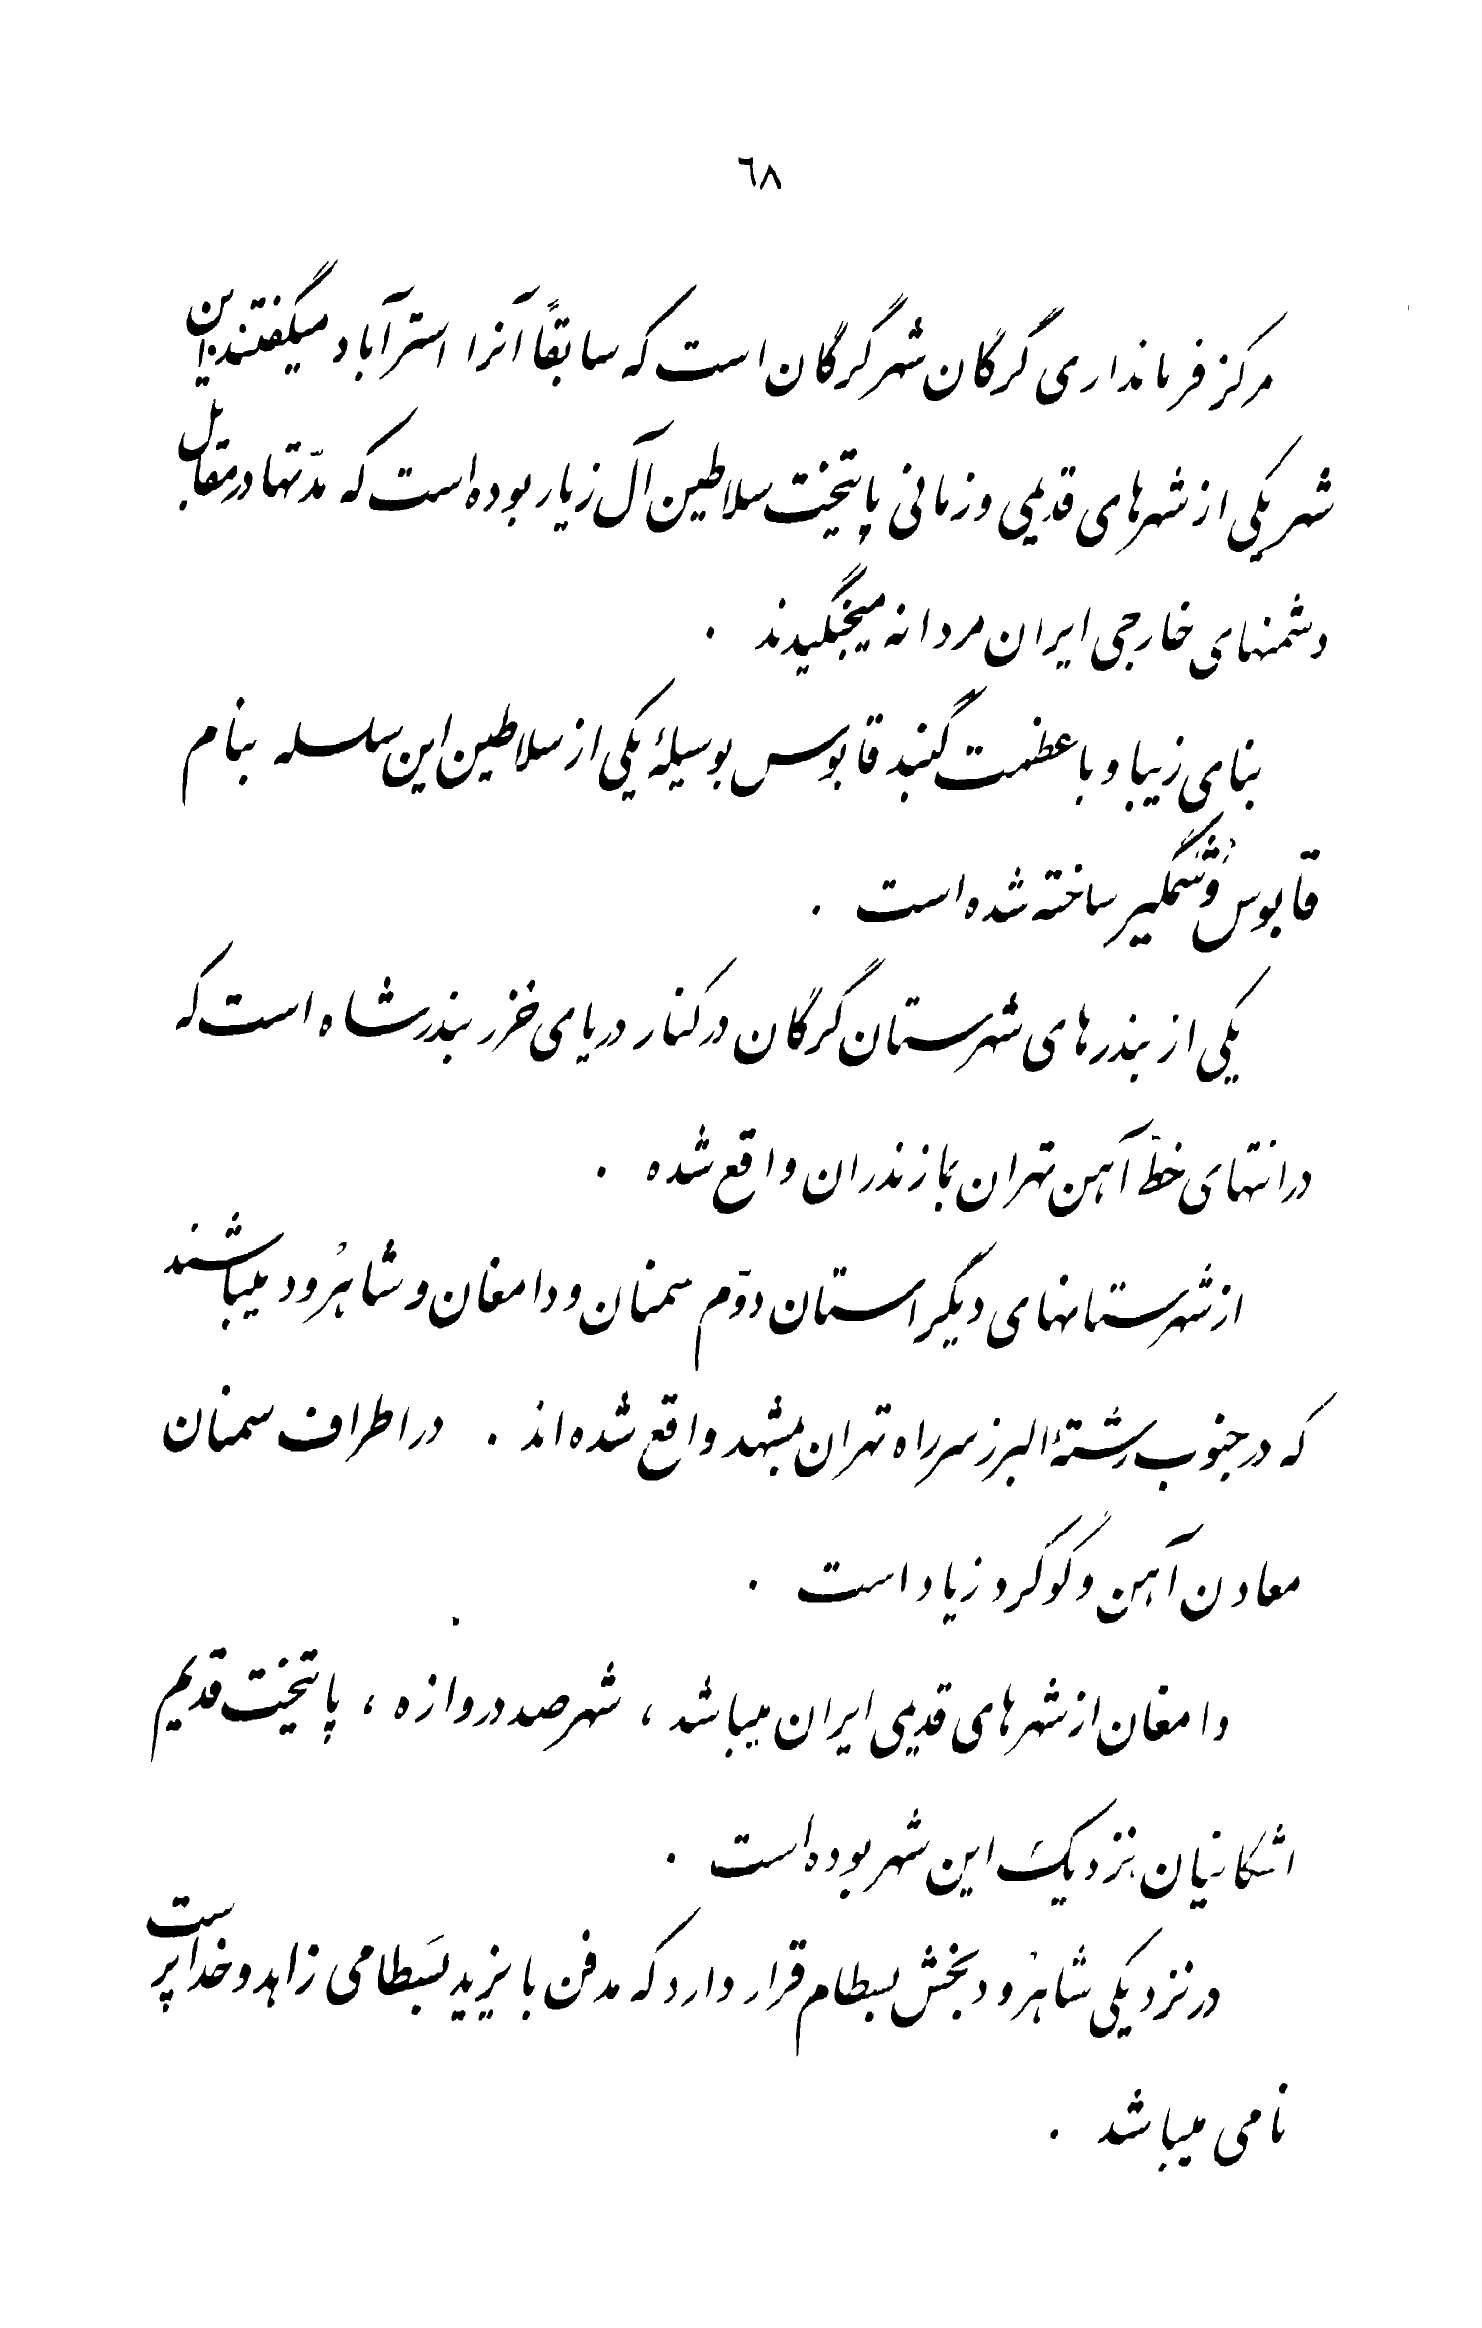 ٦٨
مرکز فرمانداری گرگان شهر گرگان است که سابقاً آنرا استرآباد میگفتند. این
شهر یکی از شهرهای قدیمی و زمانی پایتخت سلاطین آل زیار بوده است که مدّتها در مقابل
دشمنهای خارجی ایران مردانه میجنگیدند .
بنای زیبا و با عظمت گنبد قابوس بوسیلهٔ یکی از سلاطین این سلسله بنام
قابوس وُشمگیر ساخته شده است .
یکی از بندرهای شهرستان گرگان در کنار دریای خزر بندر شاه است که
در انتهای خطّ آهن تهران بمازندران واقع شده .
از شهرستانهای دیگر استان دوّم سمنان و دامغان و شاهرُود میباشند
که در جنوب رشتهٔ البرز سر راه تهران بمشهد واقع شده‌اند . در اطراف سمنان
معادن آهن و گوگرد زیاد است .
دامغان از شهرهای قدیمی ایران میباشد ، شهر صد دروازه ، پایتخت قدیم
اشکانیان نزدیک این شهر بوده است .
در نزدیکی شاهرُود بخش بسطام قرار دارد که مدفن بایزید بَسطامی زاهد و خداپرست
نامی میباشد .